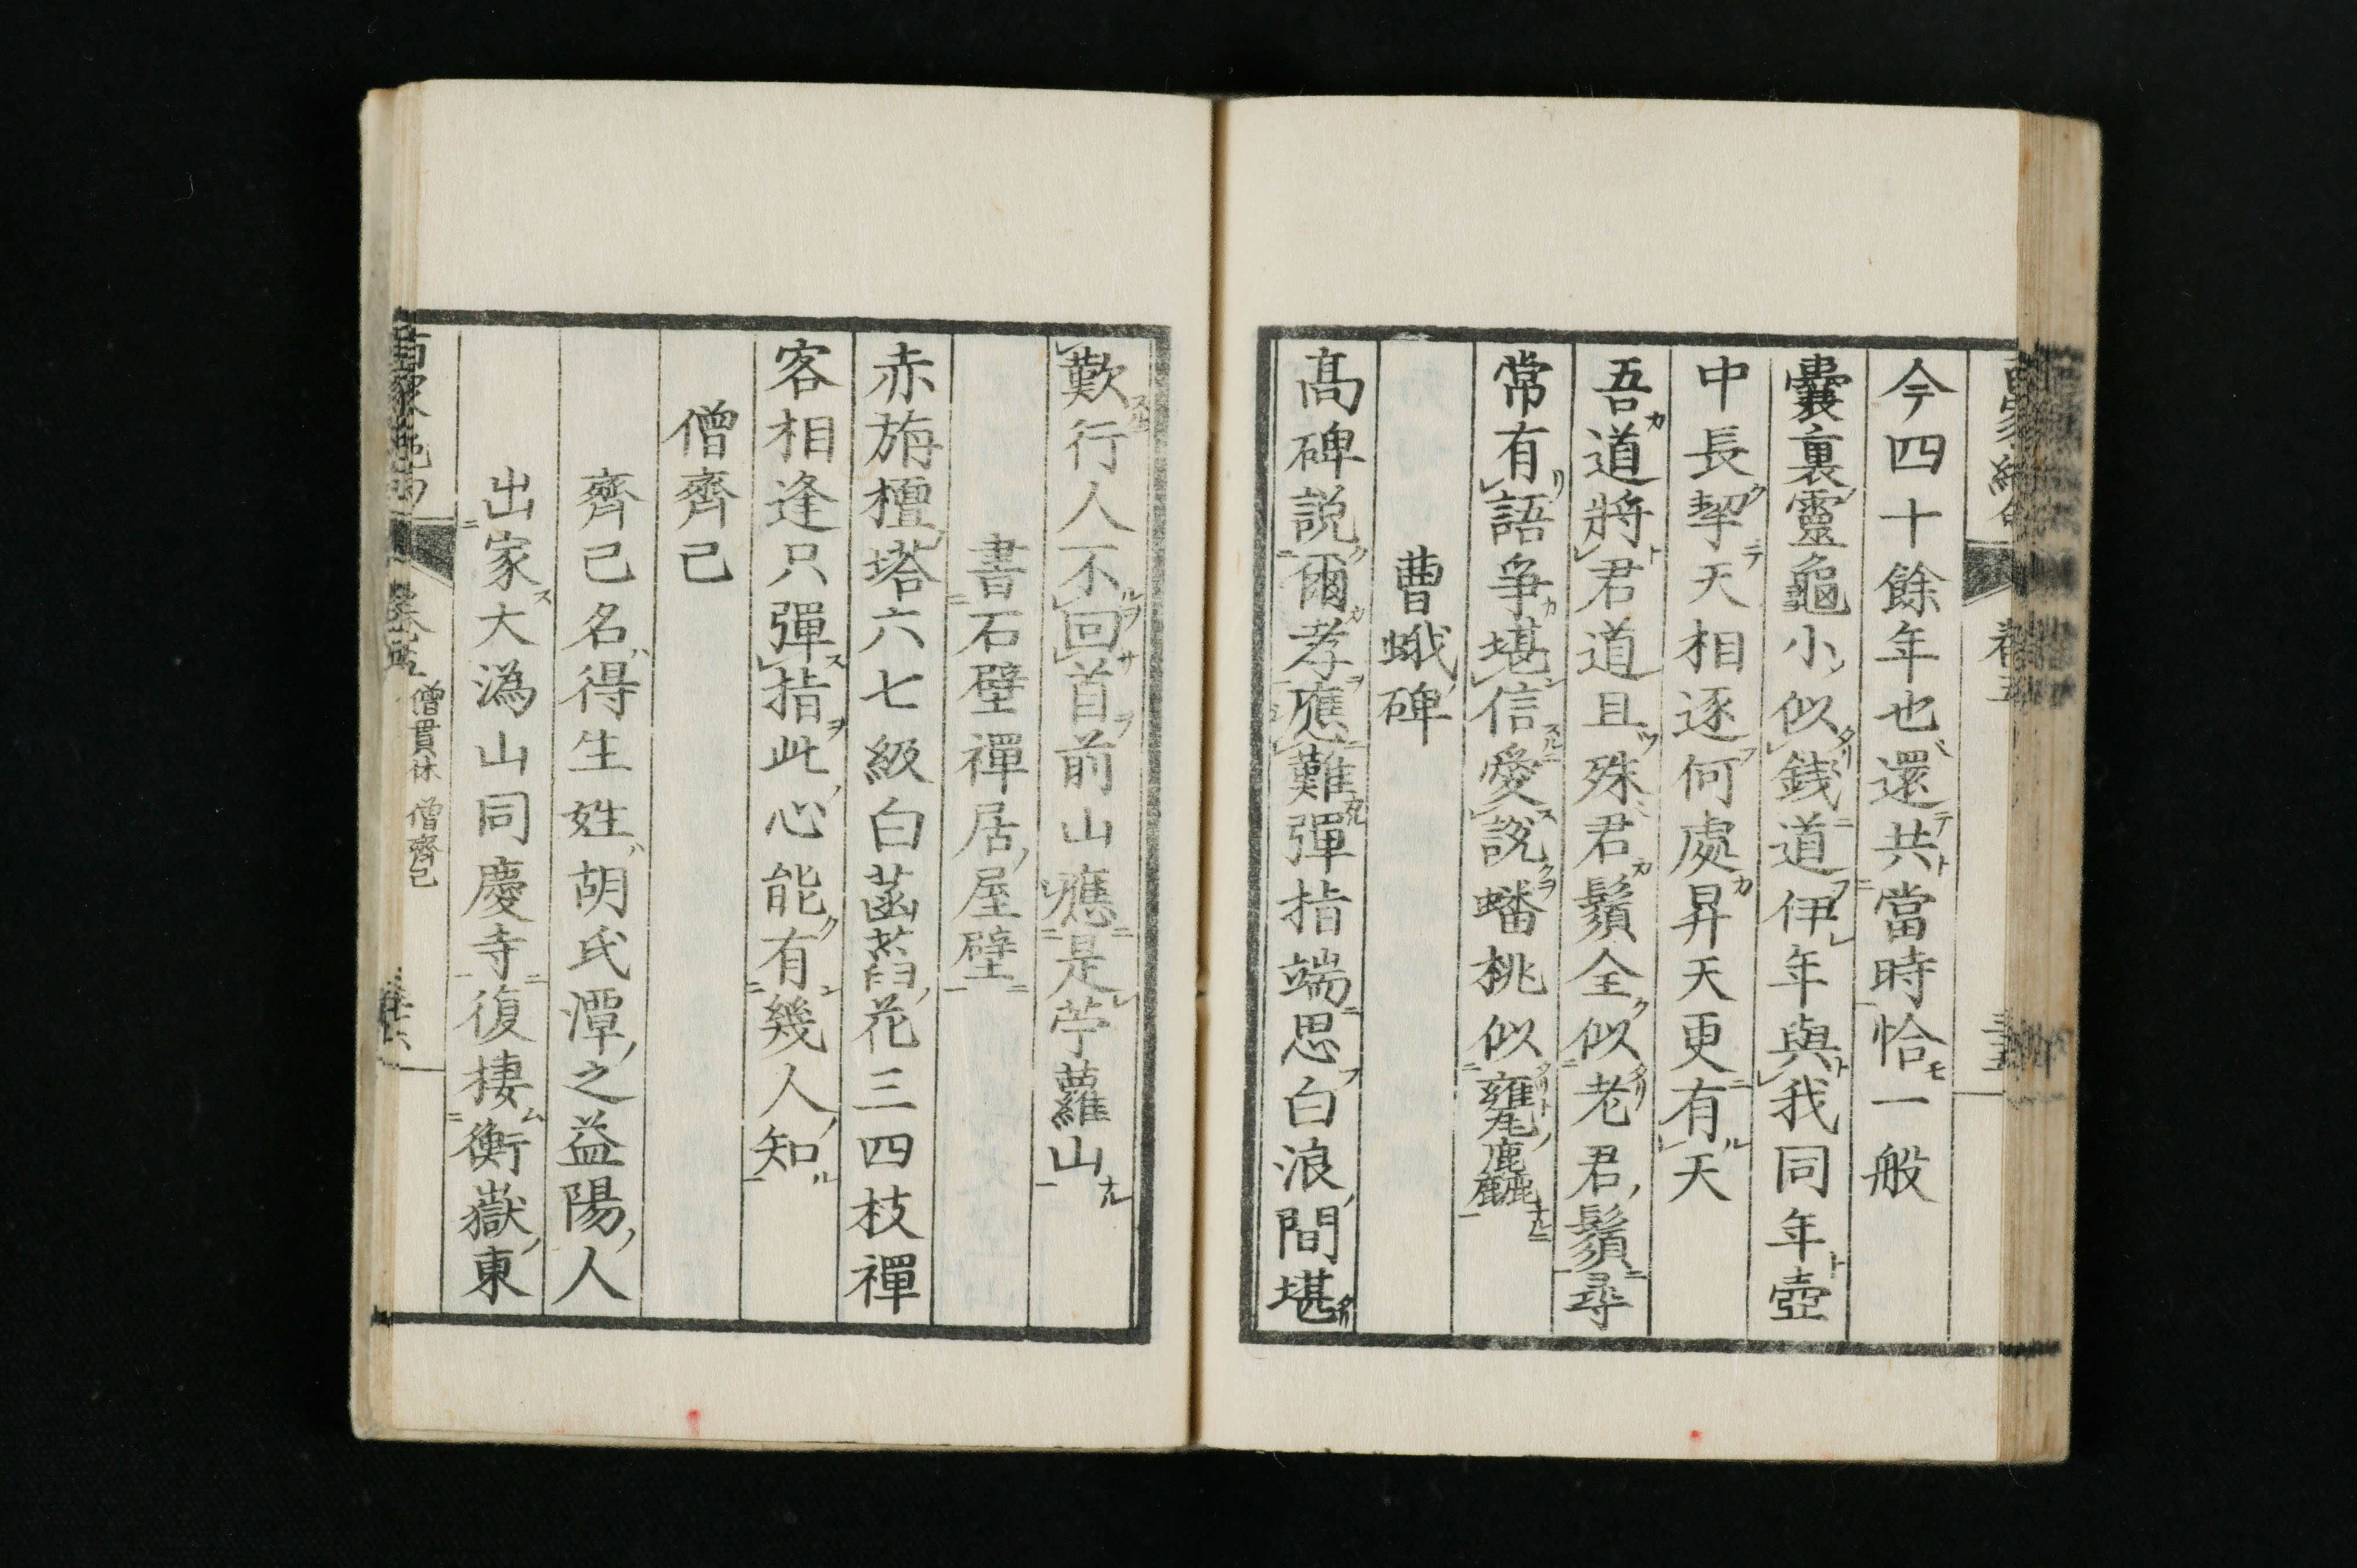 今四十餘年也還共當時恰一般
囊裏靈龜小似錢道伊年與我同年壺
中長挈天相逐何處昇天更有天
吾道將君道且殊君鬚全似老君鬚尋
常有語爭堪信愛說蟠桃似甕麤
曹娥碑
高碑說爾孝應難彈指端思白浪間堪
歎行人不回首前山應是苧蘿山
書石壁禪居屋壁
赤旃檀塔六七級白菡萏花三四枝禪
客相逢只彈指此心能有幾人知
僧齊己
齊己名得生姓胡氏潭之益陽人
出家大潙山同慶寺復棲衡嶽東
僧貫休 僧齊己